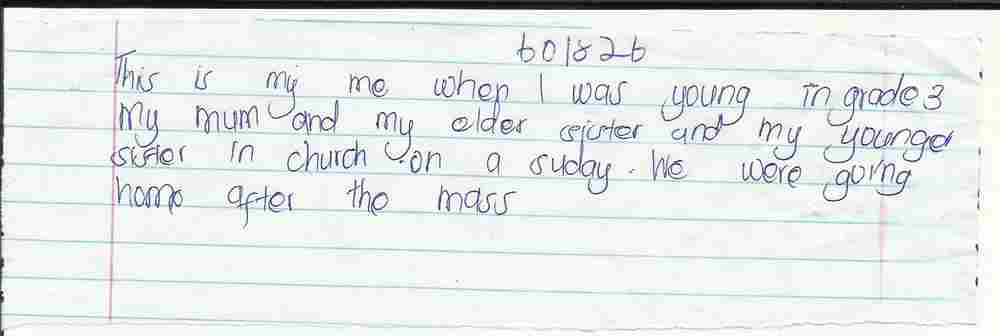 601826
This is my me when I was young in grade 3
My mum and my elder sejister and my younger
sister in church on a suday. We were going
home after the mass